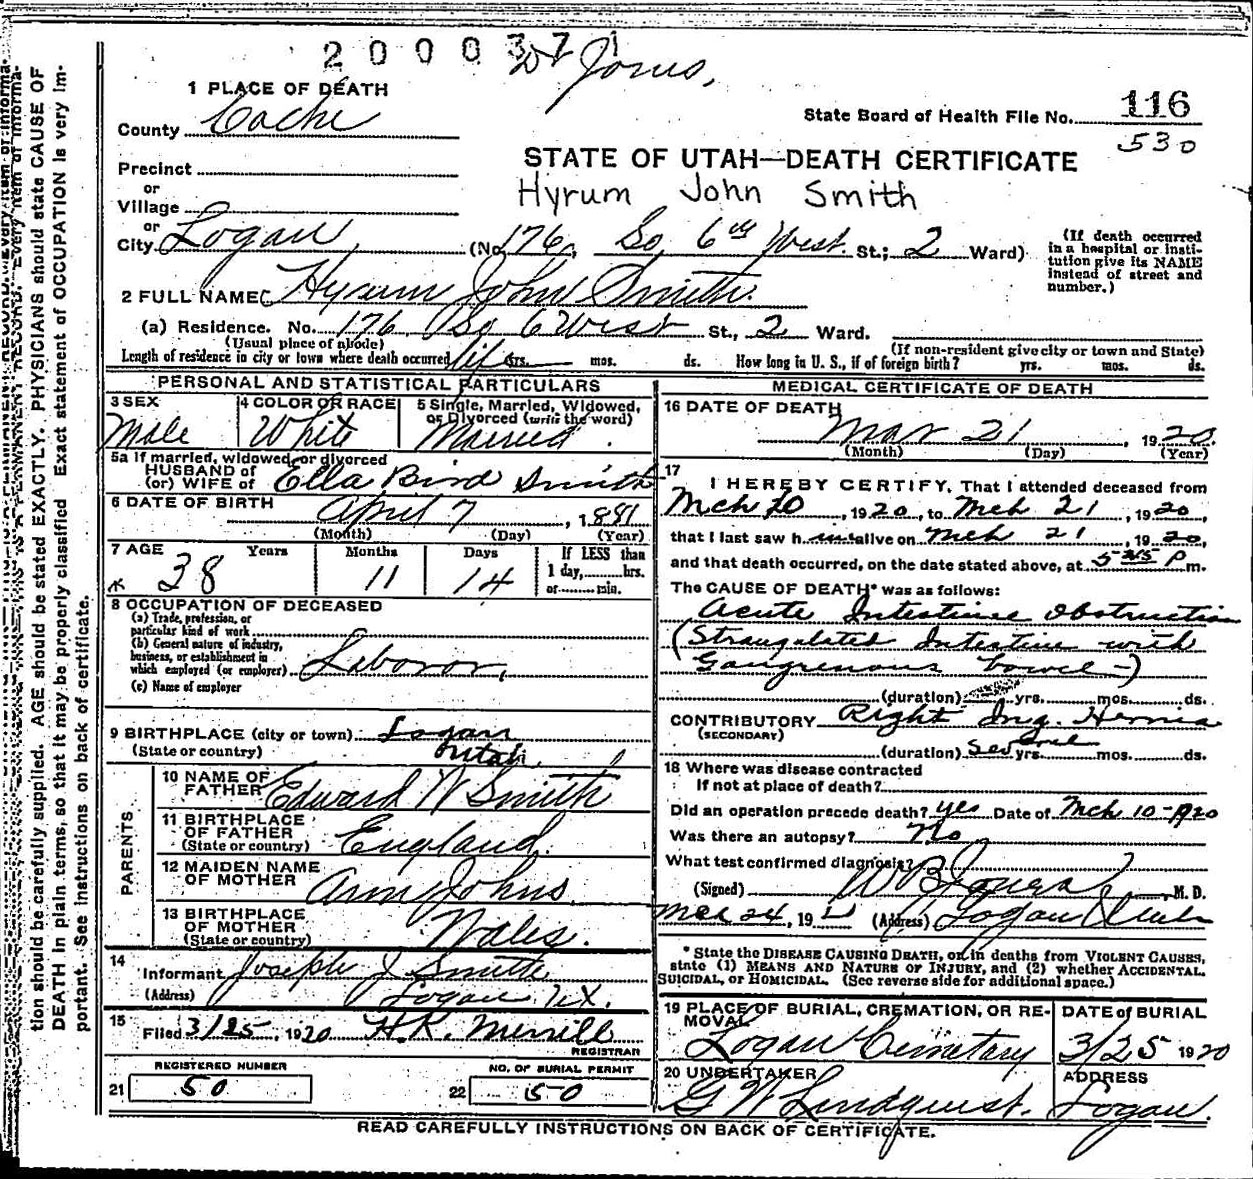 2 0 0 0 3 7 1
Dr Jones,
1 PLACE OF DEATH
County Cache
State Board of Health File No. 116
530
STATE OF UTAH—DEATH CERTIFICATE
Precinct
or
Village
Hyrum John Smith
or
City Logan (No. 176, So 6th West St.; 2 Ward)
(If death occurred in a hospital or insti-
tution give its NAME
instead of street and
number.)
2 FULL NAME Hyrum John Smith.
(a) Residence. No. 176 So 6 West St., 2 Ward.
(Usual place of abode) (If non-resident give city or town and State)
Length of residence in city or town where death occurred life yrs. mos. ds. How long in U. S., if of foreign birth? yrs. mos. ds.
PERSONAL AND STATISTICAL PARTICULARS
3 SEX Male
4 COLOR OR RACE White
5 Single, Married, Widowed,
or Divorced (write the word)
Married.
5a If married, widowed, or divorced
HUSBAND of
(or) WIFE of Ella Bird Smith
6 DATE OF BIRTH April 7, 1881
(Month) (Day) (Year)
7 AGE Years Months Days If LESS than
1 day,......hrs.
or......min.
38 11 14
8 OCCUPATION OF DECEASED
(a) Trade, profession, or
particular kind of work
(b) General nature of industry,
business, or establishment in
which employed (or employer) Laboror,
(c) Name of employer
9 BIRTHPLACE (city or town) Logan
(State or country) Utah.
PARENTS
10 NAME OF
FATHER Edward W Smith
11 BIRTHPLACE
OF FATHER
(State or country) England.
12 MAIDEN NAME
OF MOTHER Ann Johns
13 BIRTHPLACE
OF MOTHER
(State or country) Wales.
14 Informant Joseph J Smith
(Address) Logan Ut.
15 Filed 3/25, 1920 H.R. Merrill
REGISTRAR
REGISTERED NUMBER
21 50
NO. OF BURIAL PERMIT
22 50
MEDICAL CERTIFICATE OF DEATH
16 DATE OF DEATH
Mar 21, 1920.
(Month) (Day) (Year)
17 I HEREBY CERTIFY, That I attended deceased from
Mch 10, 1920, to Mch 21, 1920,
that I last saw h im alive on Mch 21, 1920,
and that death occurred, on the date stated above, at 5 45 P m.
The CAUSE OF DEATH* was as follows:
Acute Intestine Obstruction
(Strangulated Intestine with
Gangrenous bowel—)
(duration) yrs. mos. ds.
CONTRIBUTORY Right Ing. Hernia
(SECONDARY)
(duration) several yrs. mos. ds.
18 Where was disease contracted
If not at place of death?
Did an operation precede death? yes Date of Mch 10-1920
Was there an autopsy? No
What test confirmed diagnosis?
(Signed) W B Jones, M. D.
Mch 24, 192 (Address) Logan Utah
*State the DISEASE CAUSING DEATH, or in deaths from VIOLENT CAUSES,
state (1) MEANS AND NATURE OF INJURY, and (2) whether ACCIDENTAL,
SUICIDAL, OR HOMICIDAL. (See reverse side for additional space.)
19 PLACE OF BURIAL, CREMATION, OR RE-
MOVAL
Logan Cemetary
DATE of BURIAL
3/25 1920
20 UNDERTAKER
G W Lindquist.
ADDRESS
Logan.
READ CAREFULLY INSTRUCTIONS ON BACK OF CERTIFICATE.
tion should be carefully supplied. AGE should be stated EXACTLY. PHYSICIANS should state CAUSE OF
DEATH in plain terms, so that it may be properly classified Exact statement of OCCUPATION is very im-
portant. See instructions on back of certificate.